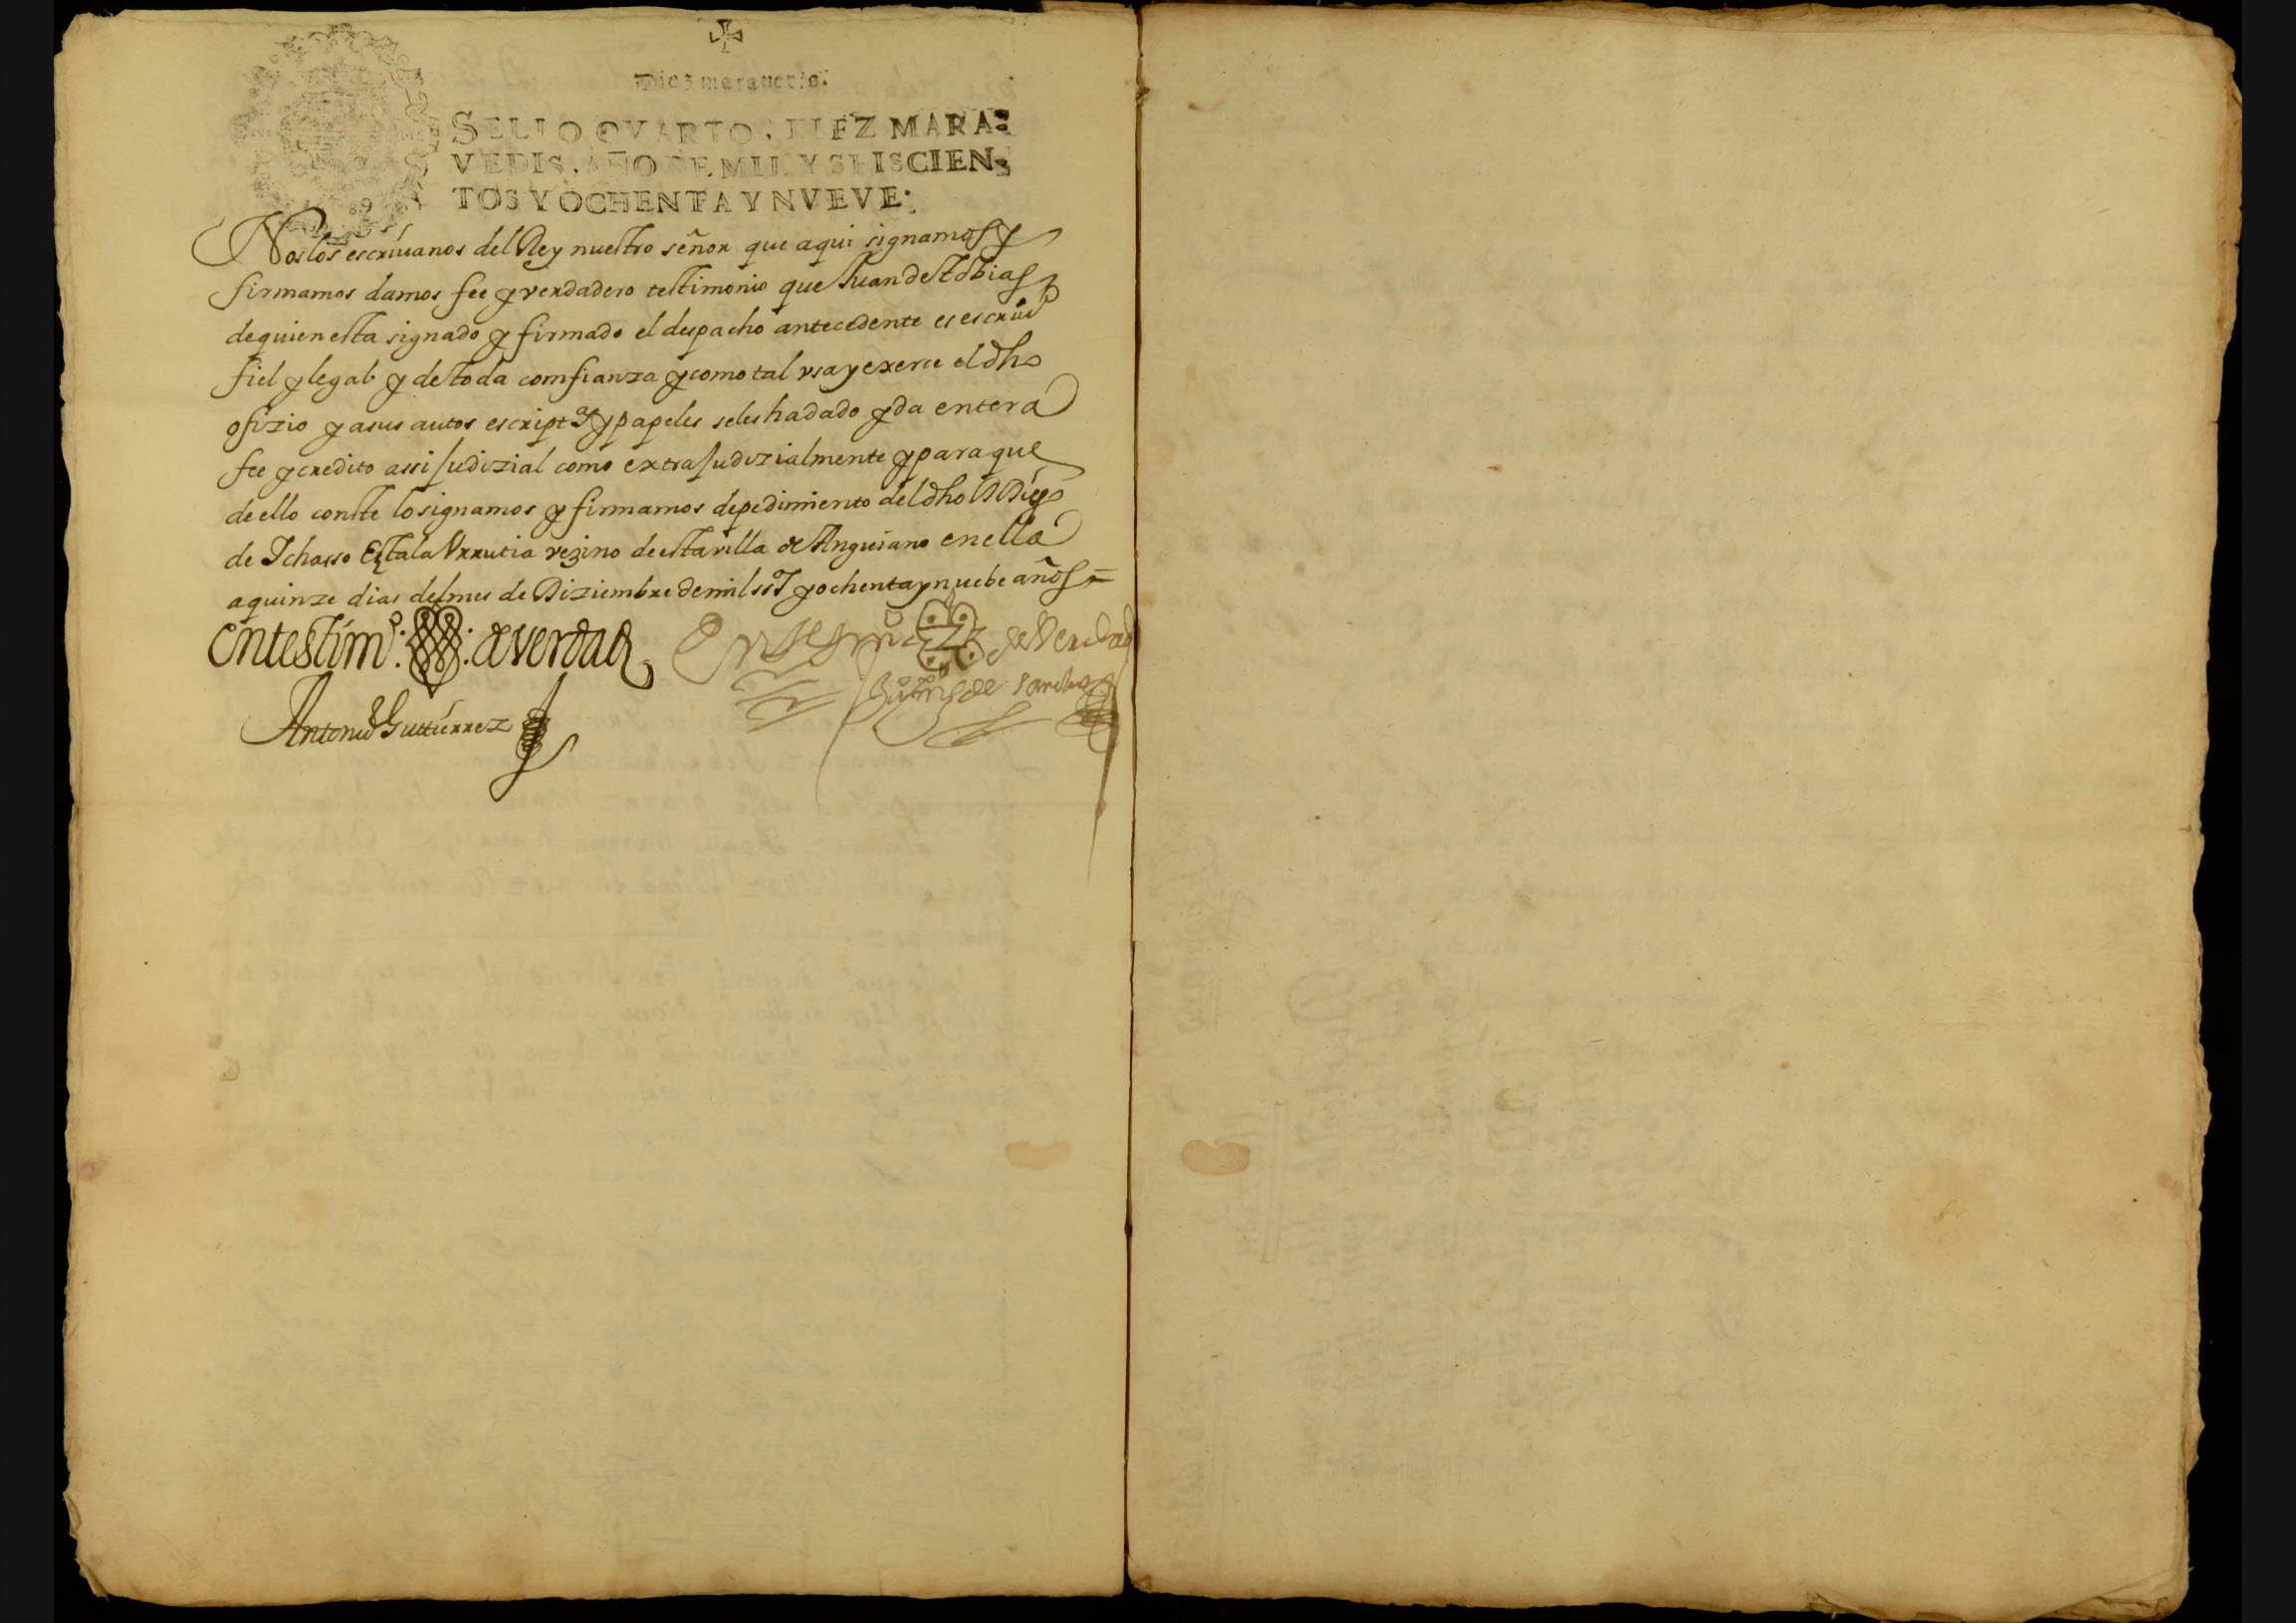 Diez marauedis.
SELLO QVARTO, DIEZ MARA-
VEDIS, AÑO DE MIL Y SEISCIEN-
TOS Y OCHENTA Y NVEVE.
89
Nos los escriuanos del Rey nuestro señor que aqui signamos y
firmamos damos fee y verdadero testimonio que Juan de Tobias
de quien esta signado y firmado el despacho antecedente es escriuo
fiel y legal y de toda comfianza y como tal vsa y exerce el dho
ofizio y a sus autos escriptas y papeles se les ha dado y da entera
fee y credito assi Judizial como extraJudizialmente y para que
de ello conste lo signamos y firmamos de pedimiento del dho D Diego
de Ichasso Eztala Vrrutia vezino de esta villa de Anguiano en ella
a quinze dias del mes de Diziembre de mil ssos y ochenta y nuebe años =
En testimo : : de verdad
En testimo de Verdad
Antonio Guttierrez